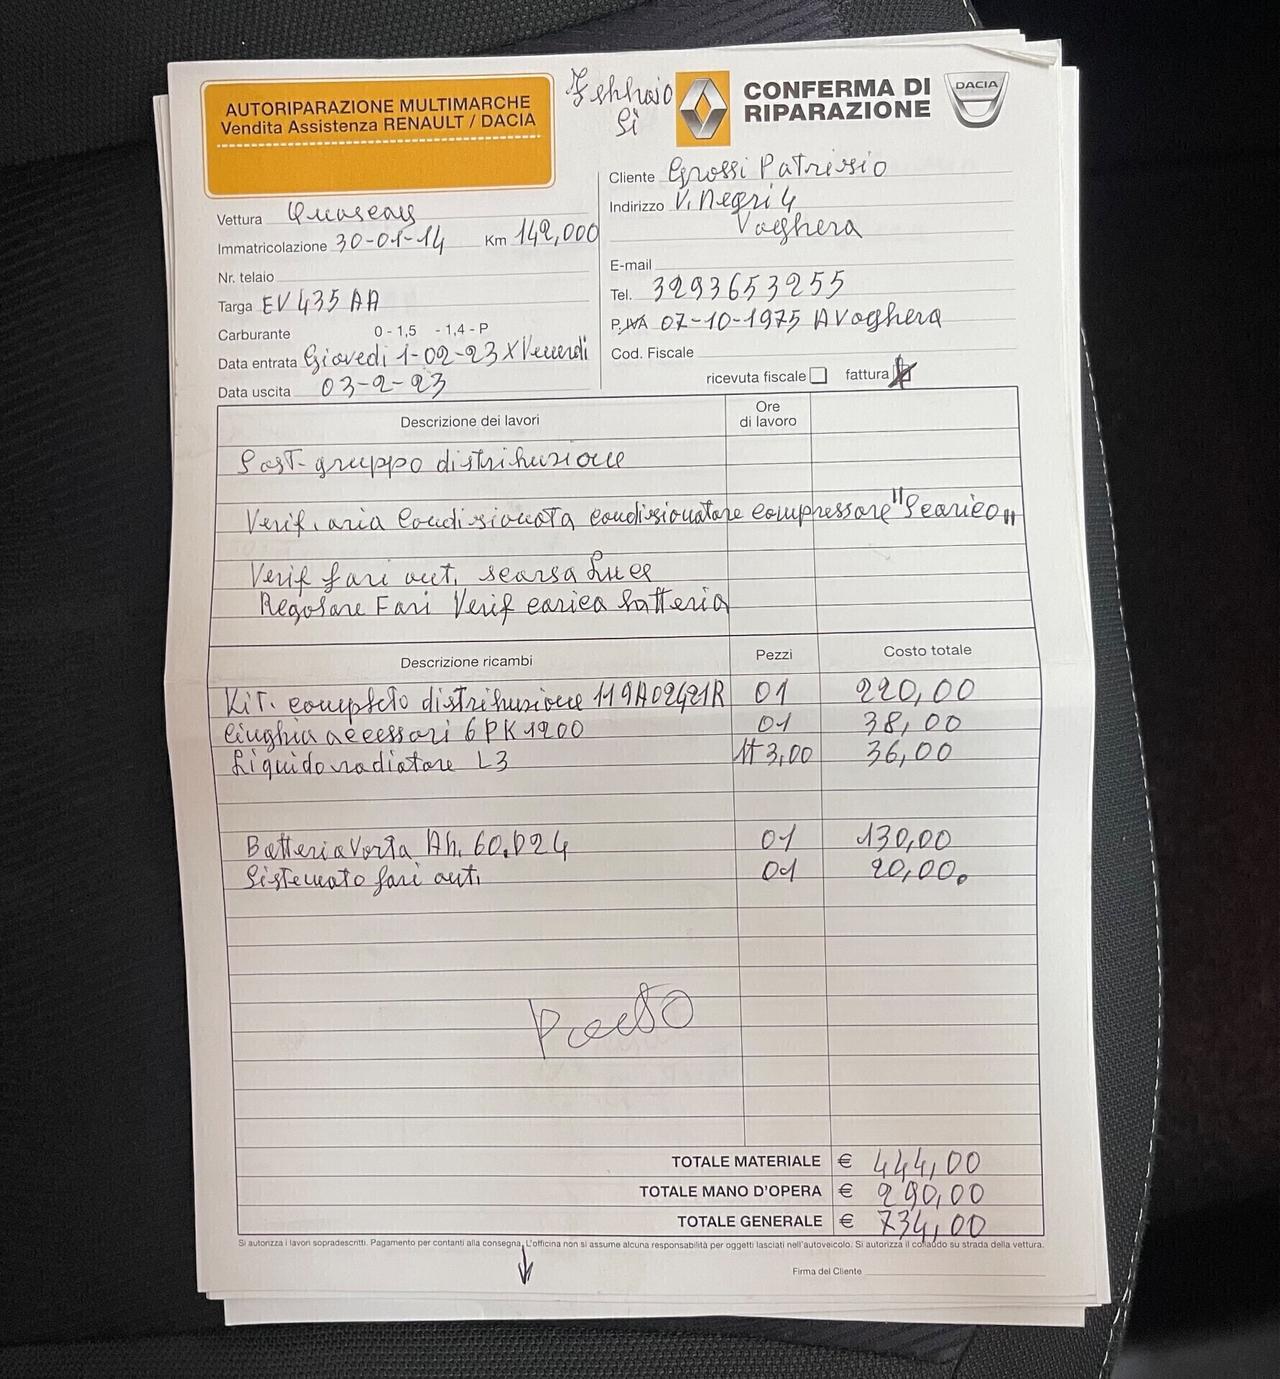 AUTORIPARAZIONE MULTIMARCHE
Vendita Assistenza RENAULT / DACIA
Febbraio
Si
CONFERMA DI
RIPARAZIONE
DACIA
Vettura
Immatricolazione 30-01-14 Km 142,000
Nr. telaio
Targa EV 435 AA
Carburante 0 - 1,5 - 1,4 - P
Data entrata Giovedi 1-02-23 X Venerdi
Data uscita 03-2-23
Cliente Grossi Patrizio
Indirizzo V. Negri 4
Voghera
E-mail
Tel. 3293653255
P. IVA 07-10-1975 A Voghera
Cod. Fiscale
ricevuta fiscale fattura
Descrizione dei lavori Ore di lavoro
Sost. gruppo distribuzione
Verif. aria condizionata condizionatore compressore "Scarico"
Verif fari ant. scarsa luce
Regolare Fari Verif carica batteria
Descrizione ricambi Pezzi Costo totale
Kit. completo distribuzione 119A02421R 01 220,00
Cinghia accessori 6PK1200 01 38,00
Liquido radiatore L3 3,00 36,00
Batteria Ah. 60. 01 130,00
Sistemato fari ant. 01 20,00.
TOTALE MATERIALE € 444,00
TOTALE MANO D'OPERA € 290,00
TOTALE GENERALE € 734,00
Si autorizza i lavori sopradescritti. Pagamento per contanti alla consegna. L'officina non si assume alcuna responsabilità per oggetti lasciati nell'autoveicolo. Si autorizza il collaudo su strada della vettura.
Firma del Cliente